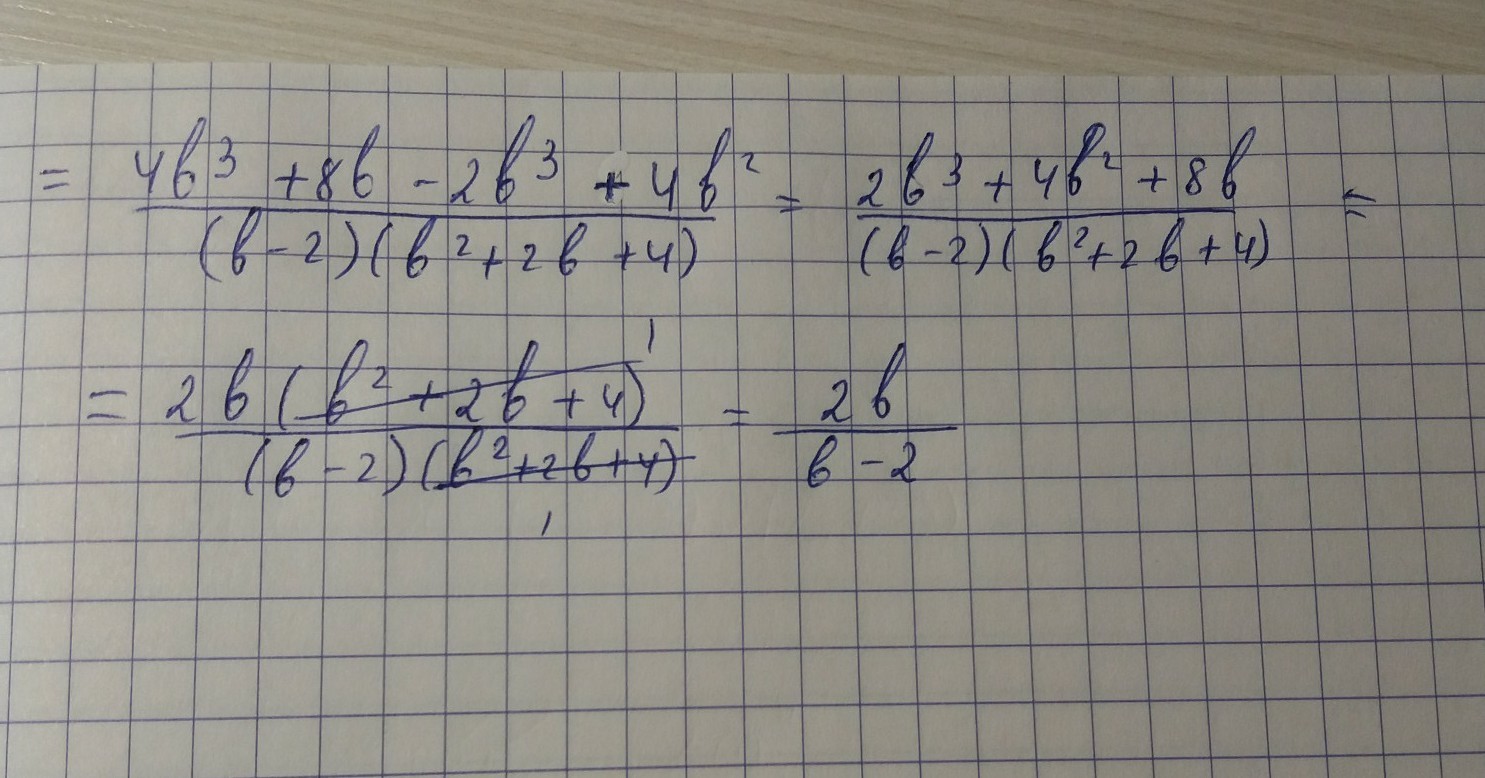 = (4b³ + 8b - 2b³ + 4b²)/((b-2)(b²+2b+4)) = (2b³ + 4b² + 8b)/((b-2)(b²+2b+4)) =
= (2b(b²+2b+4) 1)/((b-2)(b²+2b+4) 1) = 2b/(b-2)